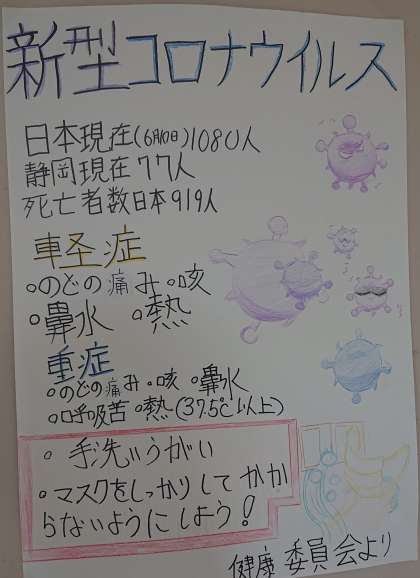 新型コロナウイルス
日本現在(6月10日)1080人
静岡現在77人
死亡者数日本919人
軽症
○のどの痛み○咳
○鼻水 ○熱
重症
○のどの痛み○咳 ○鼻水
○呼吸苦○熱(37.5℃以上)
○手洗いうがい
○マスクをしっかりしてかか
らないようにしよう!
健康委員会より